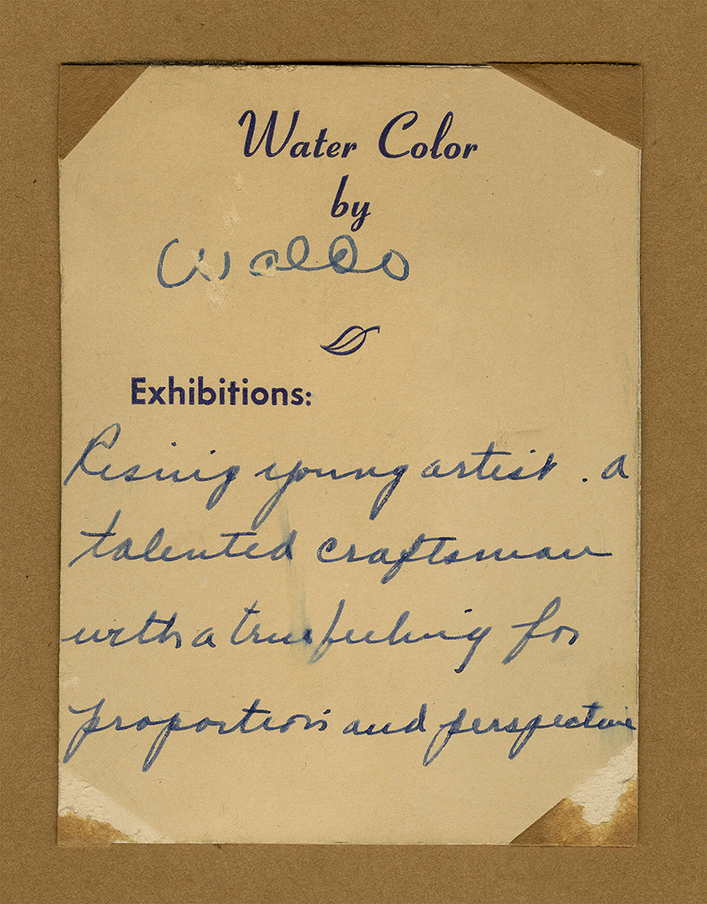 Water Color
by
Waldo
Exhibitions:
Rising young artist. a
talented craftsman
with a true feeling for
proportion and perspective